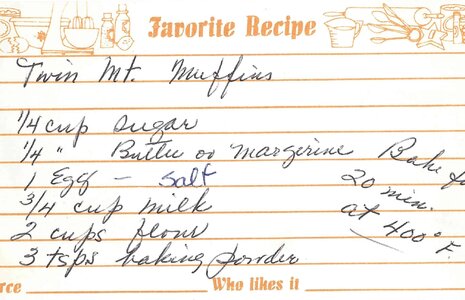 Favorite Recipe
Twin Mt. Muffins
1/4 cup sugar
1/4 " Butter or Margerine
1 Egg - Salt
3/4 cup milk
2 cups flour
3 tsps baking powder
Bake for
20 min.
at 400° F.
rce
Who likes it